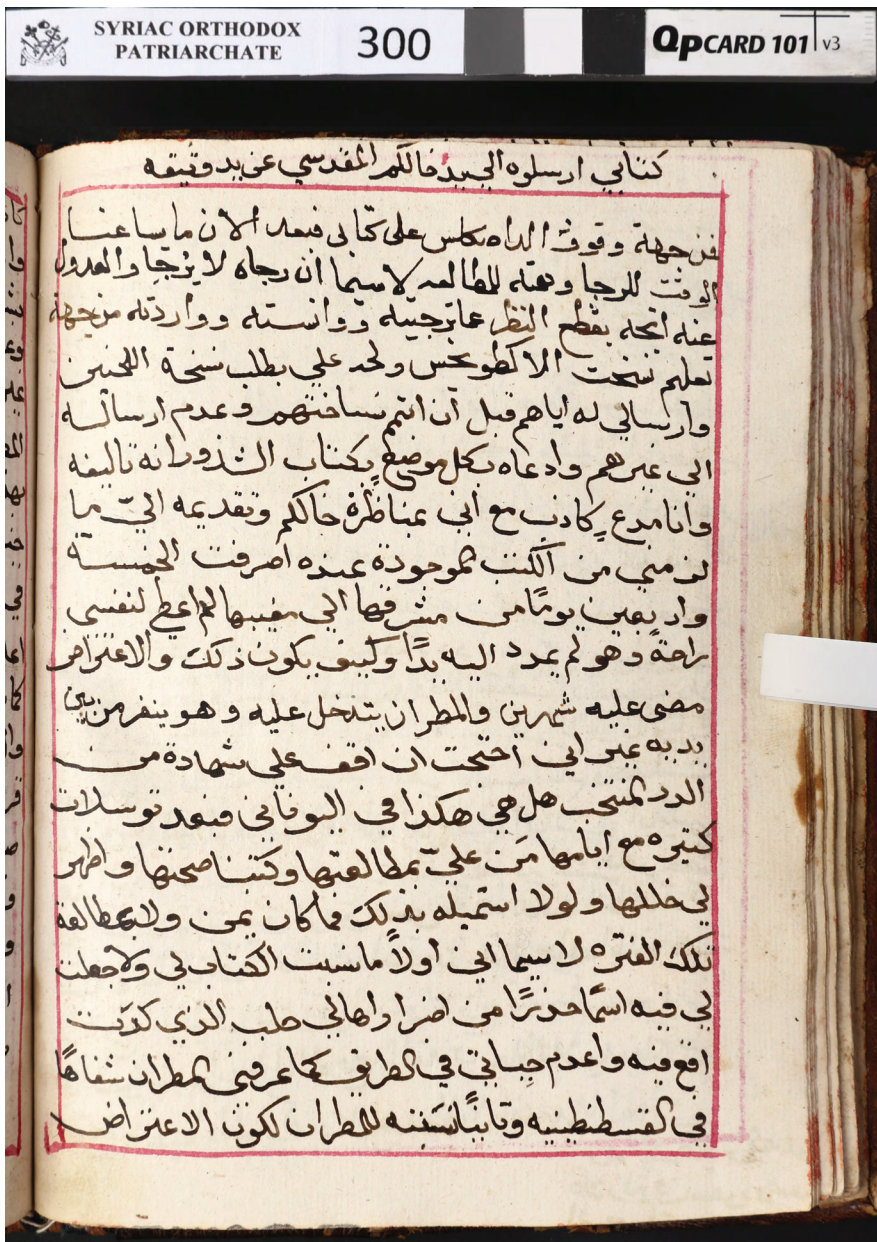 SYRIAC ORTHODOX
PATRIARCHATE
300
QPCARD 101 v3
كتابي ارسلوه الي بيد خالكم المقدسي عن يد وقيقه
فمن جهة وقوف على كتابي فبعد الان ما ساعنا
الوقت للرجا وهمته للمطالعه لاسيما ان رجاه لا يرتجا والعدول
عنه اتجه بقطع النظر عما ترجيته ووانسته وواردته من جهة
تعلهم نسخت الاكطويخس ولحد علي بطلب نسخة اللحنين
وارسالي له اياهم قبل ان اتمم نساختهم وعدم ارساله
الي غيرهم وادعاه بكل موضع بكتاب الشذور انه تاليفه
وانا مدع كاذب مع اني بمناظرة خالكم وتقديمه اليّ ما
لزمني من الكتب الموجودة عنده اصرفت الخمسة
واربعين يومًا من مشرقها الي مغيبها لم اعطِ لنفسي
راحةً وهو لم يمدد اليه يدًا وكيف يكون ذلك والاعتراض
مضى عليه شهرين والمطران يتدخل عليه وهو ينفر من بين
يديه غير اني احتجت ان اقف على شهادة من
الدر المنتخب هل هي هكذا في اليوناني فبعد توسلات
كتيره مع ايامها مَن عليّ بمطالعتها وكتبنا صحتها واظهر
لي خللها ولولا استميله بذلك فما كان يمن ولا بمطالعة
تلك الفتره لاسيما اني اولاً ما نسبت الكتاب لي ولا جعلت
لي فيه اسمًا حذرًا من اضرار اهالي حلب الذي كدت
اقع فيه واعدم حياتي في الطريق كما عرفني المطران شفاهًا
في القسطنطينيه وثانيًا نسَبته للمطران لكون الاعتراض